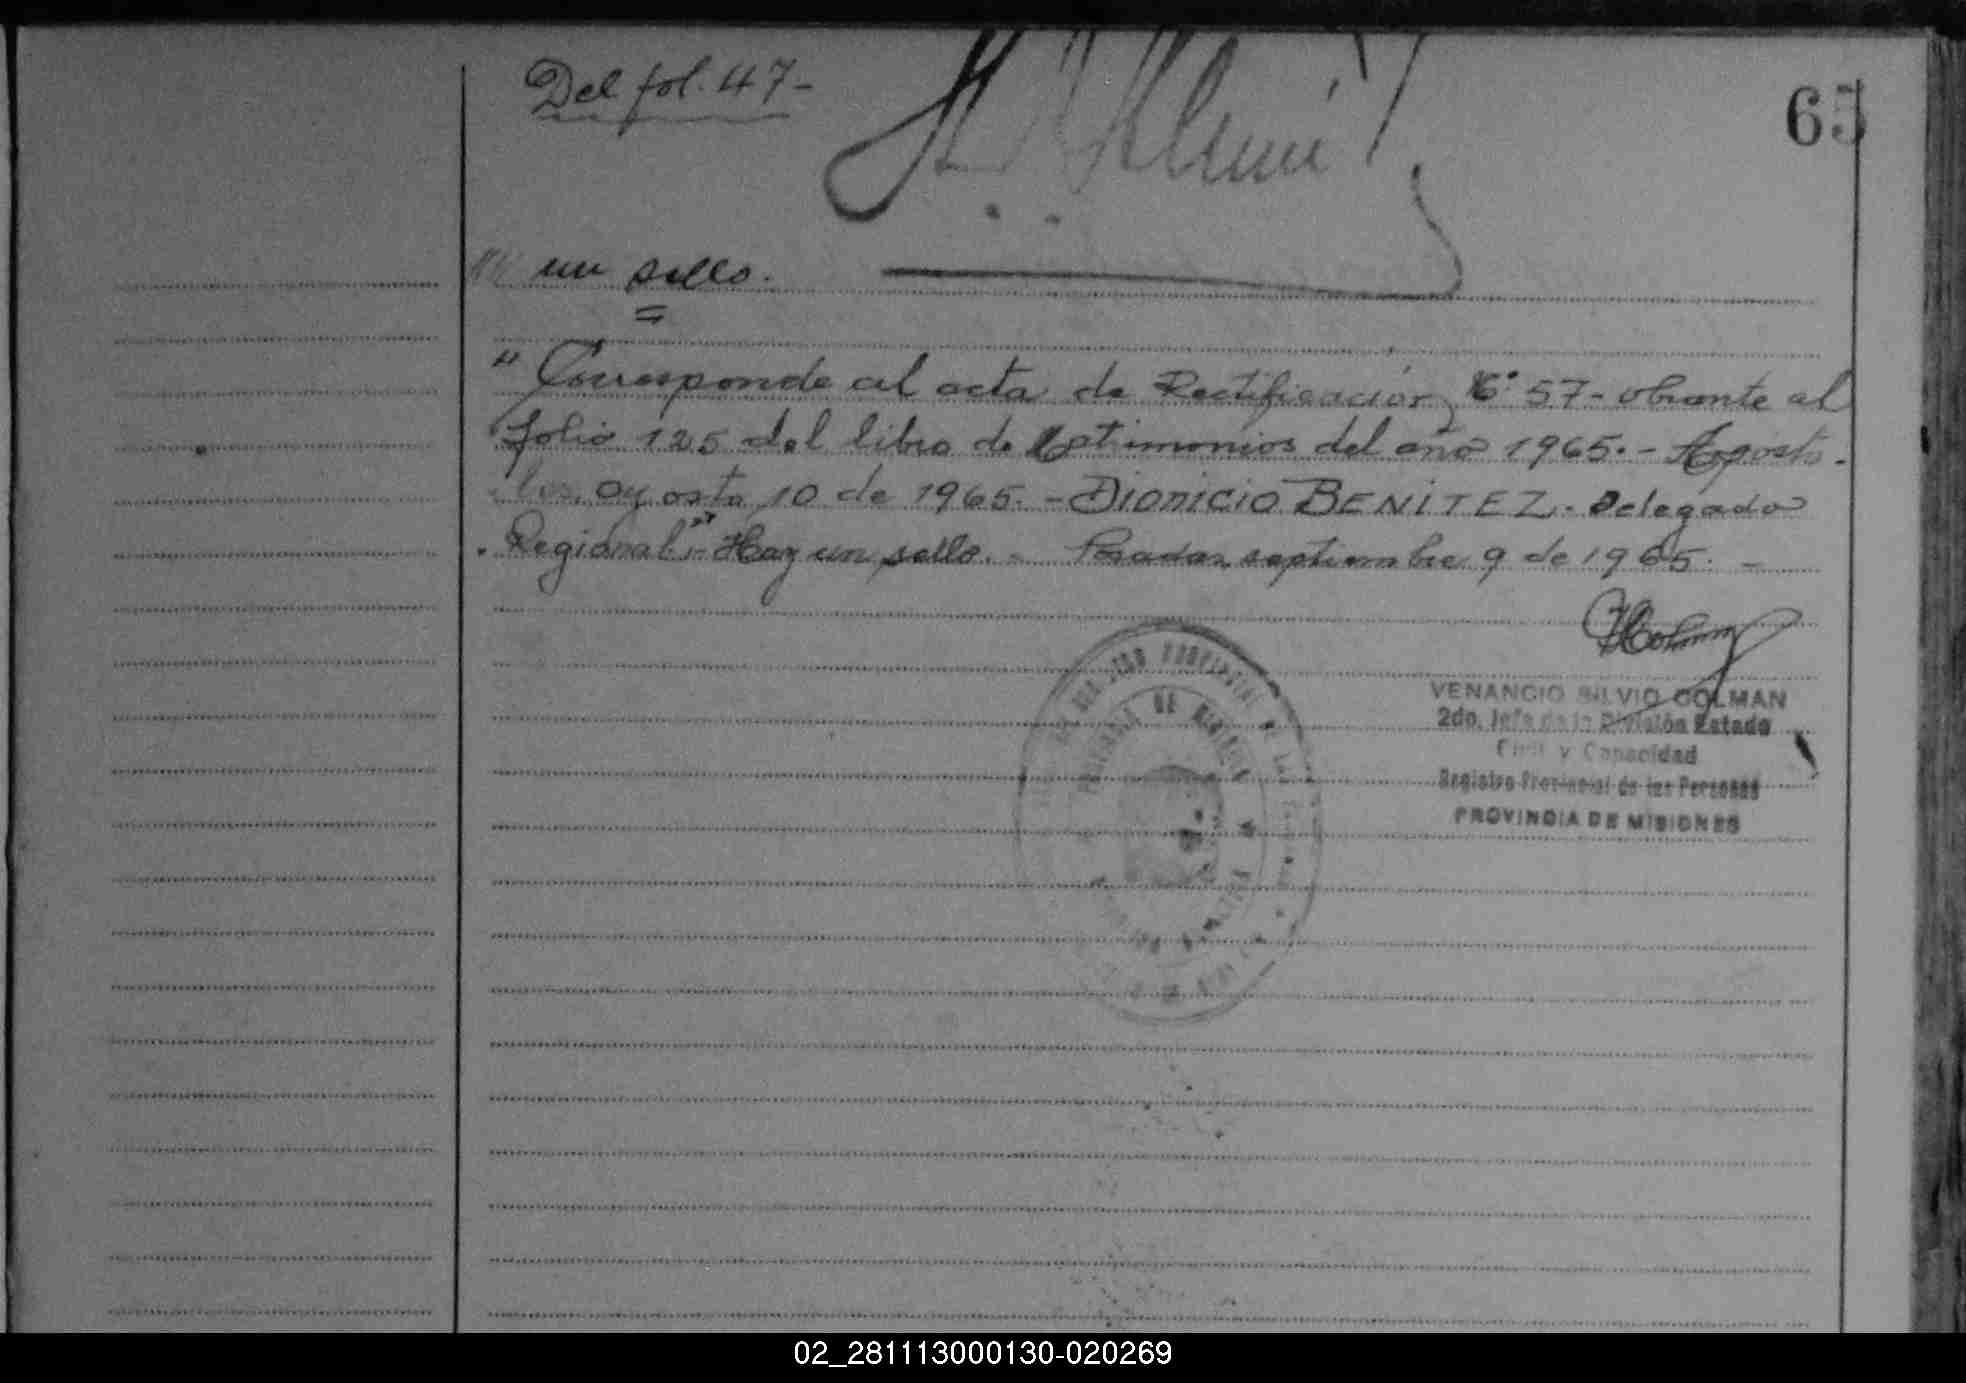 Del fol. 47-
65
un sello.
=
" Corresponde al acta de Rectificación, Nº 57- obrante al
folio 125 del libro de del año 1965.- Aposto-
les, agosto 10 de 1965.- Dionicio BENITEZ. Delegado
Regional".- Hay un sello.- Posadas, septiembre 9 de 1965.-
VENANCIO SILVIO COLMAN
2do. Jefe de la División Estado
Civil y Capacidad
Registro Provincial de las Personas
PROVINCIA DE MISIONES
PROVINCIA DE MISIONES
02_281113000130-020269